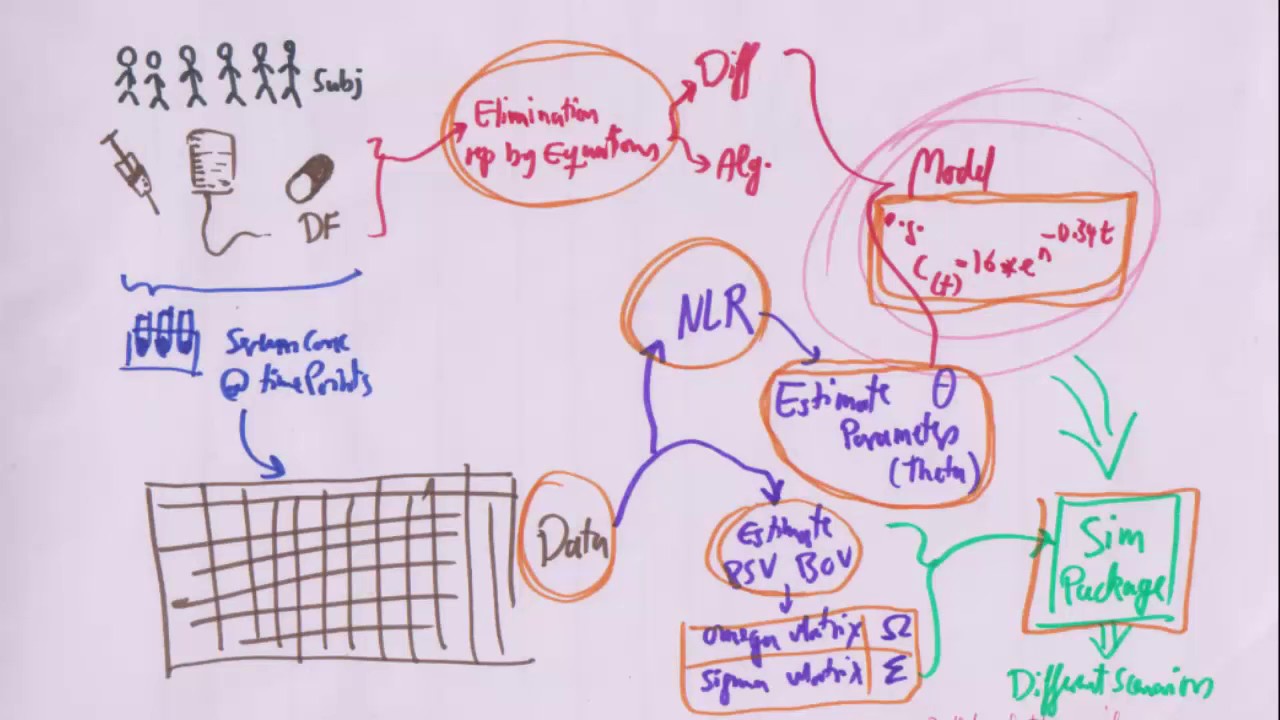 Subj
DF
Elimination
rep by Equations
Diff
Alg.
Model
e.g.
C(t) = 16 * e^ -0.34t
Serum Conc
@ time Points
NLR
Estimate θ
Parameters
(theta)
Data
Estimate
BSV BOV
omega Matrix Ω
sigma Matrix Σ
Sim
Package
Different Scenarios